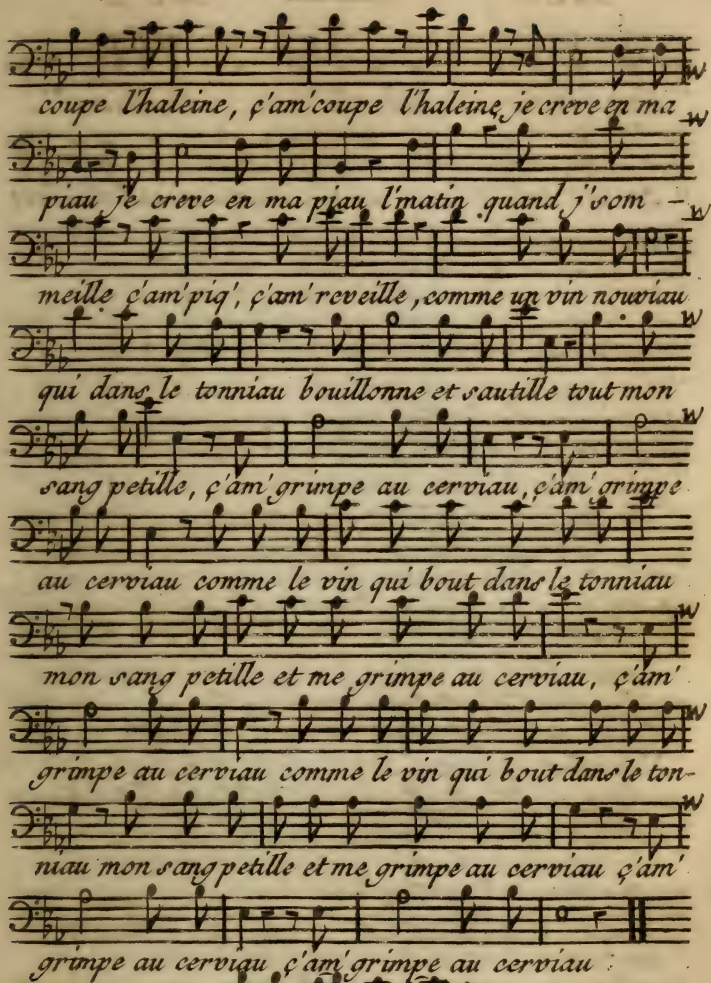 coupe l'haleine, ç'am'coupe l'haleine, je creve en ma
piau je creve en ma piau l'matin quand j'som -
meille ç'am'piq', ç'am'reveille, comme un vin nouviau
qui dans le tonniau bouillonne et sautille tout mon
sang petille, ç'am'grimpe au cerviau, ç'am'grimpe
au cerviau comme le vin qui bout dans le tonniau
mon sang petille et me grimpe au cerviau, ç'am'
grimpe au cerviau comme le vin qui bout dans le ton-
niau mon sang petille et me grimpe au cerviau ç'am'
grimpe au cerviau ç'am'grimpe au cerviau :